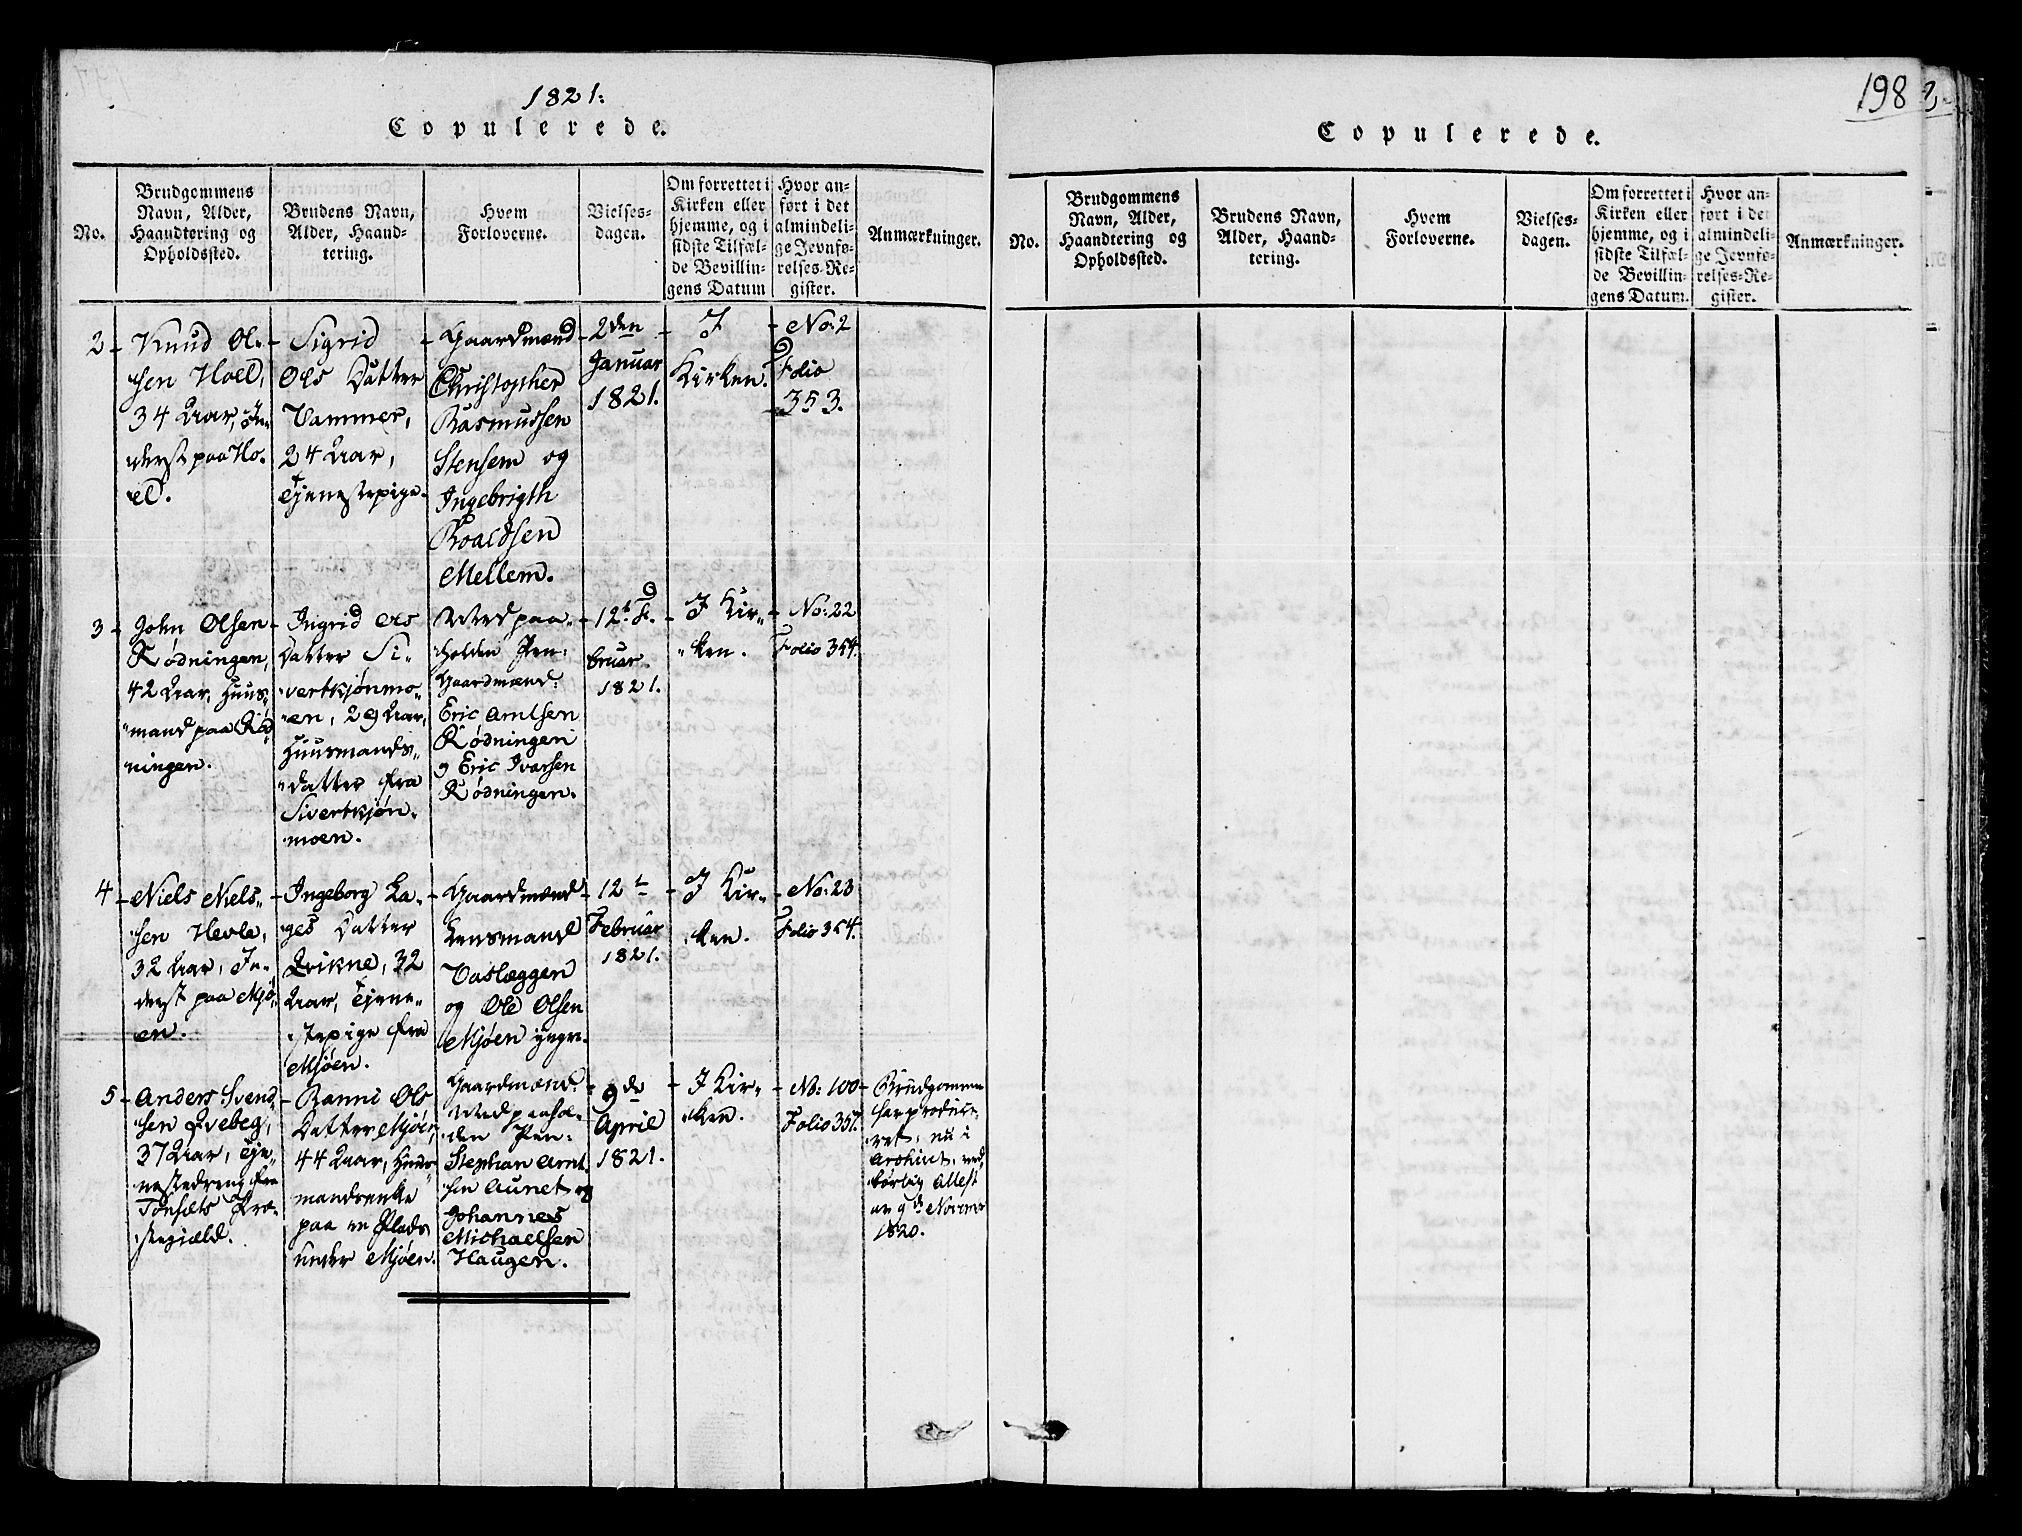 1821.
Copulerede.
No.
Brudgommens
Navn, Alder,
Haandtering og
Opholdssted.
Brudens Navn,
Alder, Haand-
tering.
Hvem
Forloverne.
Vielses-
dagen.
Om forrettet i
Kirken eller
hjemme, og i
sidste Tilfæl-
de Bevillin-
gens Datum
Hvor an-
ført i det
almindeli-
ge Jevnfø-
relses-Re-
gister.
Anmærkninger.
2
Knud Ol-
sen Hoel,
34 Aar, In-
derst paa Ho-
el.
Sigrid
Ols Datter
Vammer,
24 Aar,
Tjenestepige.
Gaardmænd
Christopher
Rasmussen
Stensem og
Ingebrigth
Roaldsen
Mellem.
2den
Januar
1821.
I
Kirken.
No: 2
Folio
353.
3
John Olsen
Rødningen,
42 Aar, Huus-
mand paa Rød-
ningen.
Ingrid Ols
Datter Si-
vertkjønmo-
en, 29 Aar,
Huusmands-
datter fra
Sivertkjøn-
moen.
Med paa-
holden Pen:
Gaardmænd:
Eric Arntsen
Rødningen
og Eric Ivarsen
Rødningen.
12t Fe-
bruar
1821.
I Kir-
ken.
No: 22
Folio 354.
4
Niels Niels-
sen Hevle,
32 Aar, In-
derst paa Mjø-
en.
Ingeborg La-
ges Datter
Qvikne, 32
Aar, Tjene-
stepige fra
Mjøen.
Gaardmænd
Lensmand
Vaslæggen
og Ole Olsen
Mjøen yngr.
12t
Februar
1821.
I Kir-
ken.
No: 23
Folio 354.
5
Anders Svend-
sen Qvebeg,
37 Aar, Tje-
nestedreng fra
Tønsæts Præ-
stegjæld.
Ranni Ols
Datter Mjøen,
44 Aar, Huus-
mandsenke
paa en Plads
under Mjøen.
Gaardmænd:
Med paahol-
den Pen:
Stephan Arnt-
sen Aunet og
Johannes
Michaelsen
Haugen.
9de
April
1821.
I Kir-
ken.
No: 100
Folio 357.
Brudgommen
har produce-
ret, nu i
Archivet, ved-
børlig Attest
av 9de Novemr
1820.
198
Copulerede.
No.
Brudgommens
Navn, Alder,
Haandtering og
Opholdssted.
Brudens Navn,
Alder, Haand-
tering.
Hvem
Forloverne.
Vielses-
dagen.
Om forrettet i
Kirken eller
hjemme, og i
sidste Tilfæl-
de Bevillin-
gens Datum.
Hvor an-
ført i det
almindeli-
ge Jevnfø-
relses-Re-
gister.
Anmærkninger.